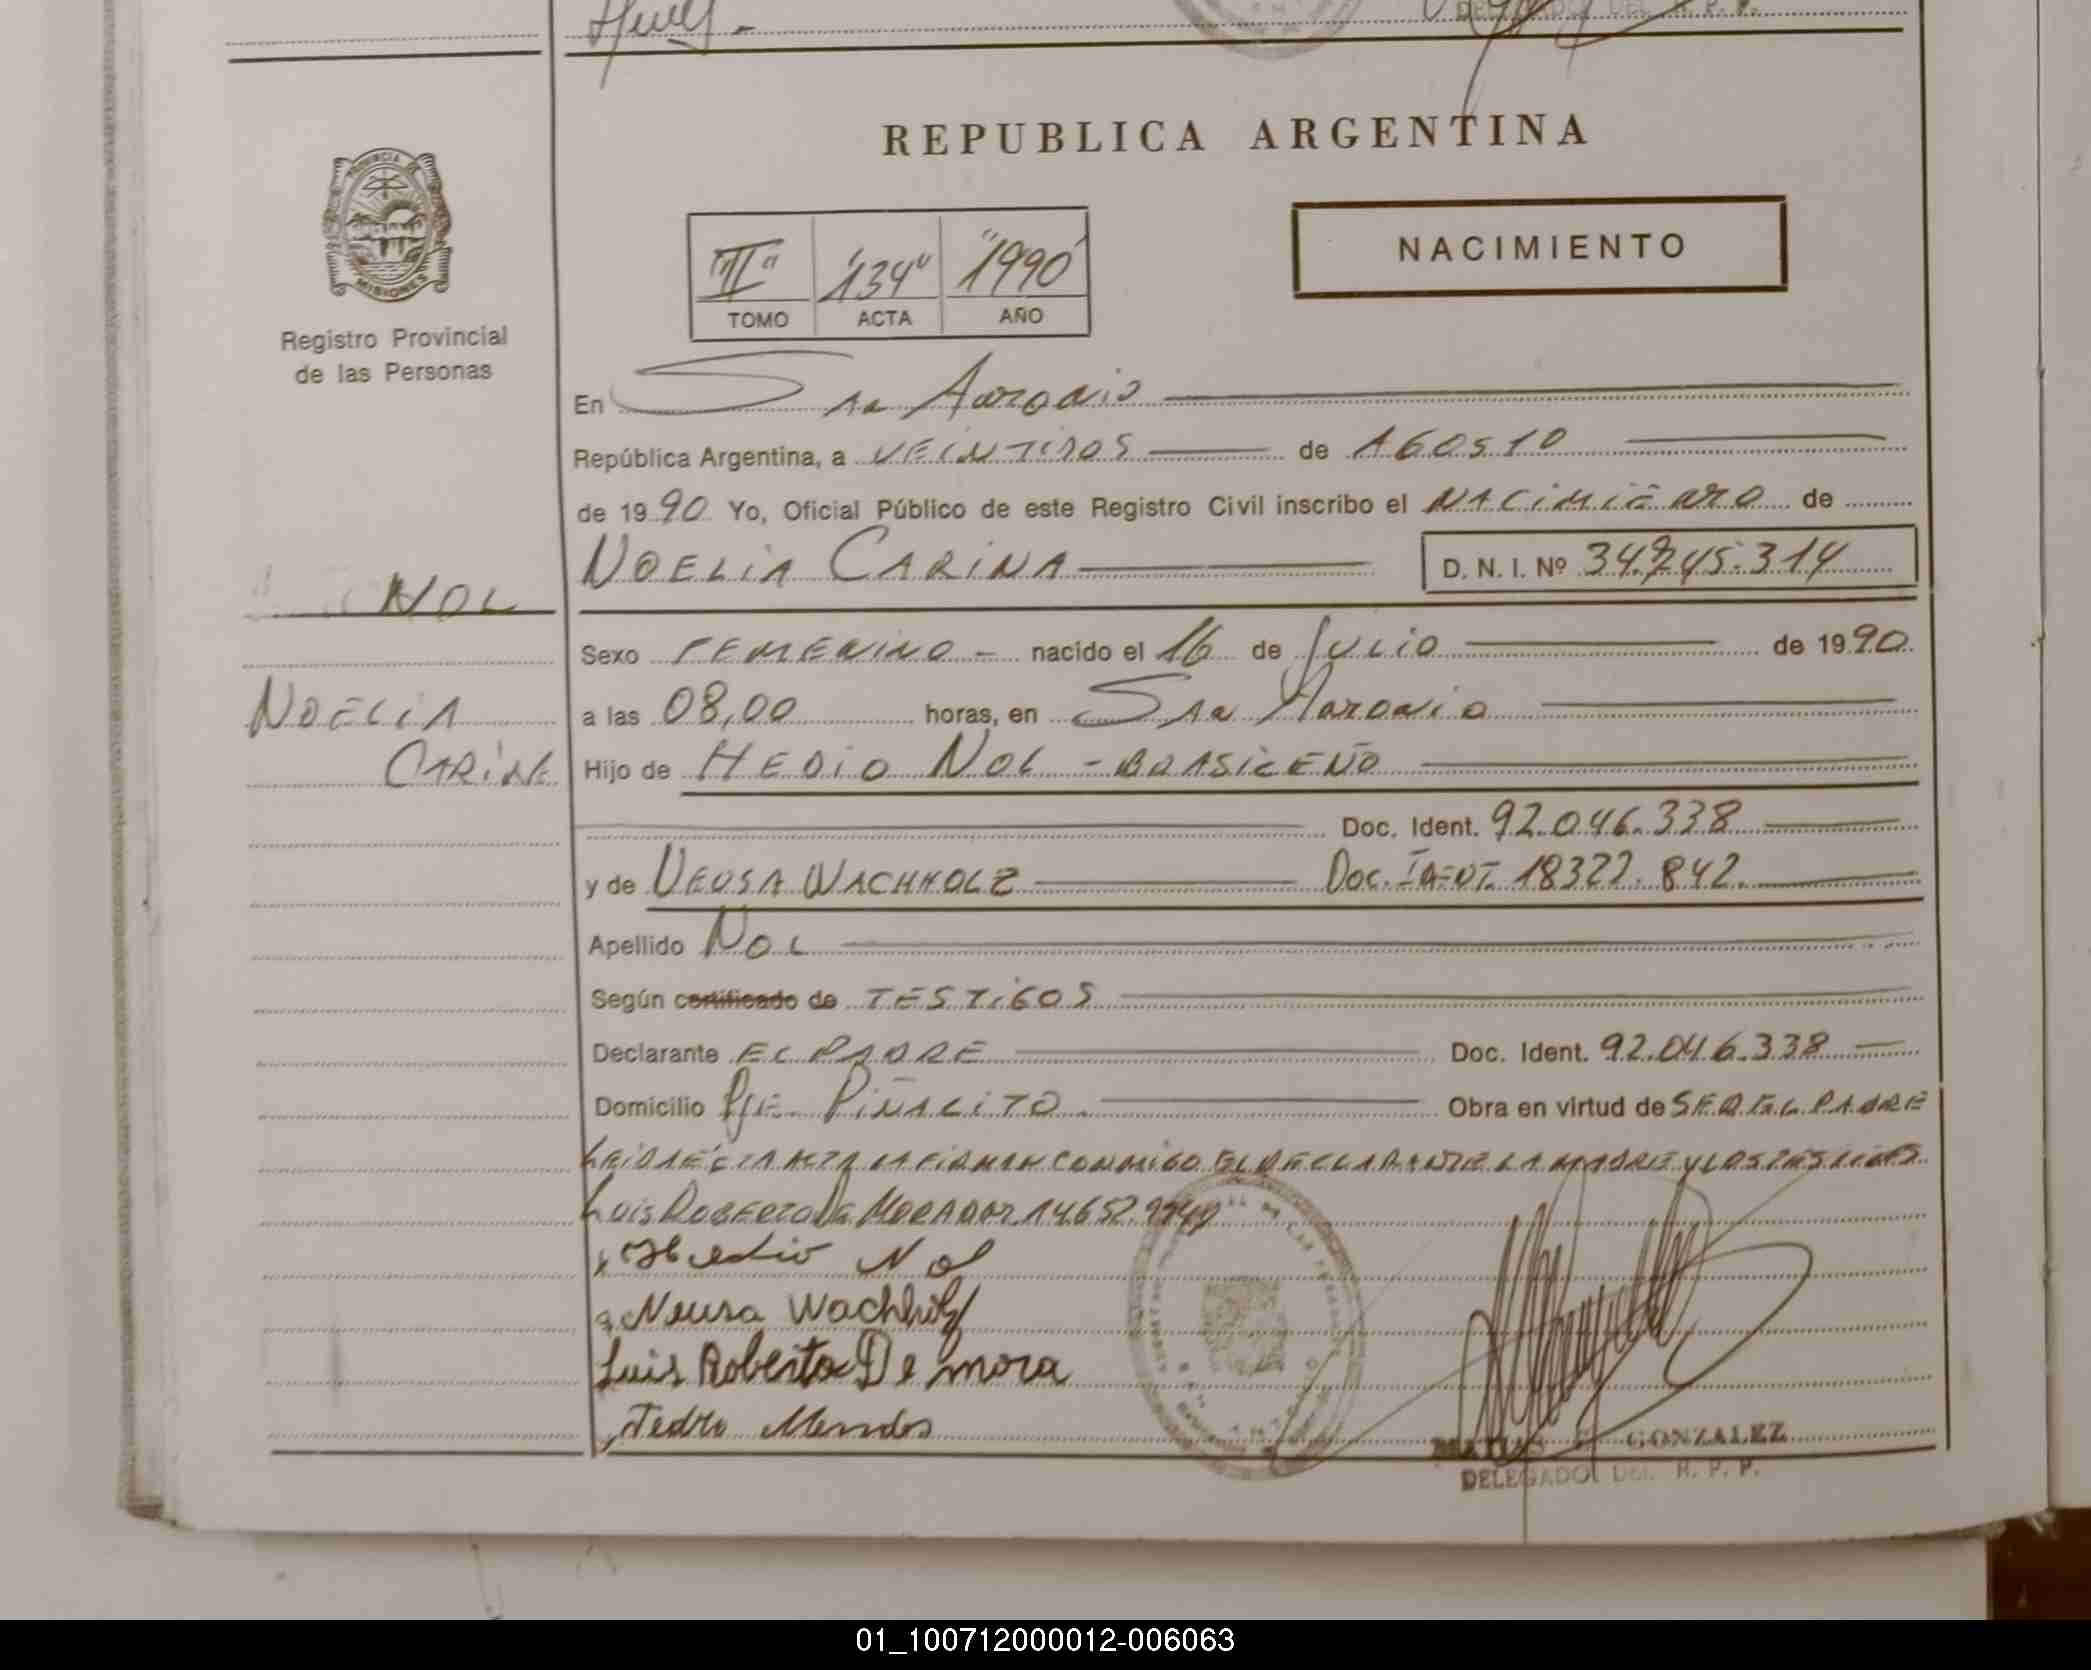 DELEGADO DEL R. P. P.
REPUBLICA ARGENTINA
PROVINCIA DE
MISIONES
Registro Provincial
de las Personas
NACIMIENTO
"II" "134" "1990"
TOMO ACTA AÑO
En San Antonio
República Argentina, a VEINTIDOS de AGOSTO
de 1990 Yo, Oficial Público de este Registro Civil inscribo el NACIMIENTO de
NOELIA CARINA D. N. I. Nº 34.745.314
NOL
Sexo FEMENINO - nacido el 16 de Julio de 1990
NOELIA
CARINA
a las 08,00 horas, en San Antonio
Hijo de HEDIO NOL - BRASILEÑO
Doc. Ident. 92.046.338
y de NEUSA WACHHOLZ Doc. IDENT. 18322.842
Apellido NOL
Según certificado de TESTIGOS
Declarante EL PADRE Doc. Ident. 92.046.338
Domicilio Pje. PIÑALITO Obra en virtud de SER EL PADRE
LEIDA EL ACTA LA FIRMAN CONMIGO EL DECLARANTE LA MADRE Y LOS TESTIGOS
LUIS ROBERTO De MORA DOC 14652.
Hedio Nol
Neusa Wachholz
Luis Roberto De mora
Pedro Mendes
GONZALEZ
DELEGADO DEL R. P. P.
01_100712000012-006063